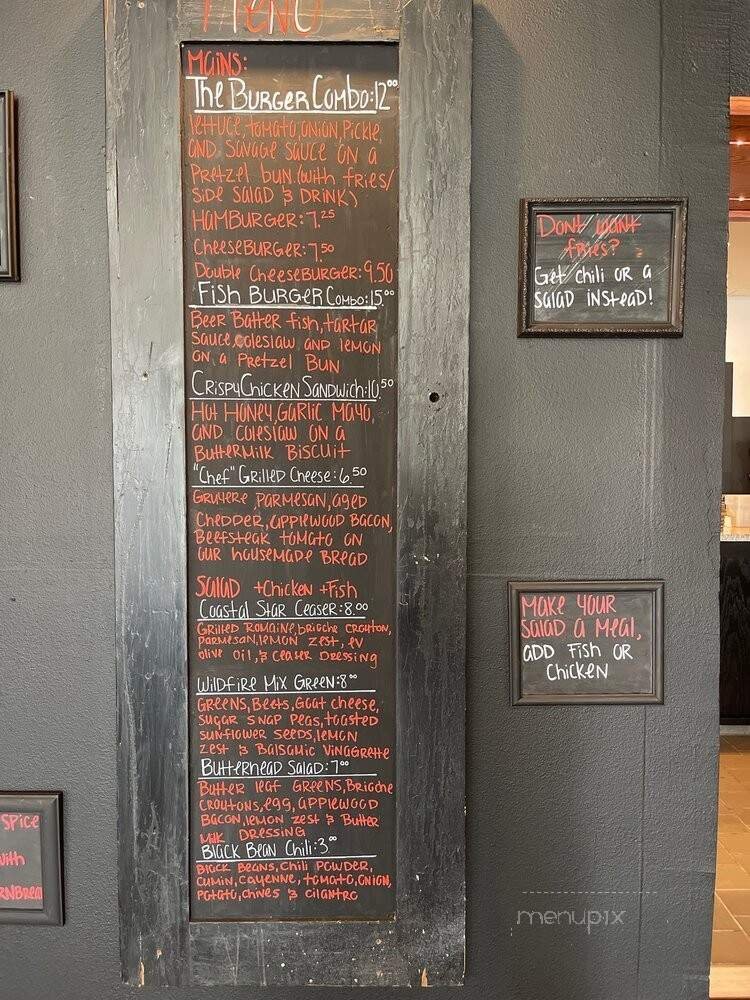 MENU
MAINS:
The BURGER COMBO:12⁰⁰
lettuce, tomato, onion, Pickle,
AND SAVAGE SAUCE ON A
Pretzel bun.(with fries/
SIDE SALAD & DRINK)
HAMBURGER:7.²⁵
CHEESEBURGER:7.⁵⁰
Double CheeseBURGER:9.50
FISH BURGER COMBO:15.⁰⁰
Beer Batter fish, tartar
Sauce, coleslaw AND lemon
ON a Pretzel BUN
CRISPY CHICKEN SANDWICH:10.⁵⁰
Hot Honey, Garlic Mayo,
AND COleslaw ON a
ButterMilk BISCUIT
"Chef" Grilled Cheese:6.⁵⁰
GRUYERE PARMESAN, aged
CHEDDER, applewood Bacon,
Beefsteak tomato ON
OUR housemade BREAD
SALAD +Chicken +Fish
Coastal Star Ceaser:8.⁰⁰
Grilled Romaine, brioche crouton,
PARMESAN, lemon Zest, EV
olive oil, & Ceaser Dressing
WILDFIRE MIX GREEN:8⁰⁰
GREENS, Beets, Goat cheese,
SUGAR SNAP Peas, toasted
sunflower seeds, lemon
zest & Balsamic Vinagrette
Butterhead Salad:7⁰⁰
Butter leaf GREENS, Brioche
CROUTONS, egg, applewood
Bacon, lemon zest & Butter
Milk DRESSING
Black Bean Chili:3.⁰⁰
Black Beans, Chili Powder,
Cumin, Cayenne, tomato, onion,
Potato, chives & cilantro
DONT WANT
fries?
Get chili or a
salad instead!
Make your
salad a meal,
ADD FISH OR
CHICKEN
SPICE
with
RNBREAD
menupix